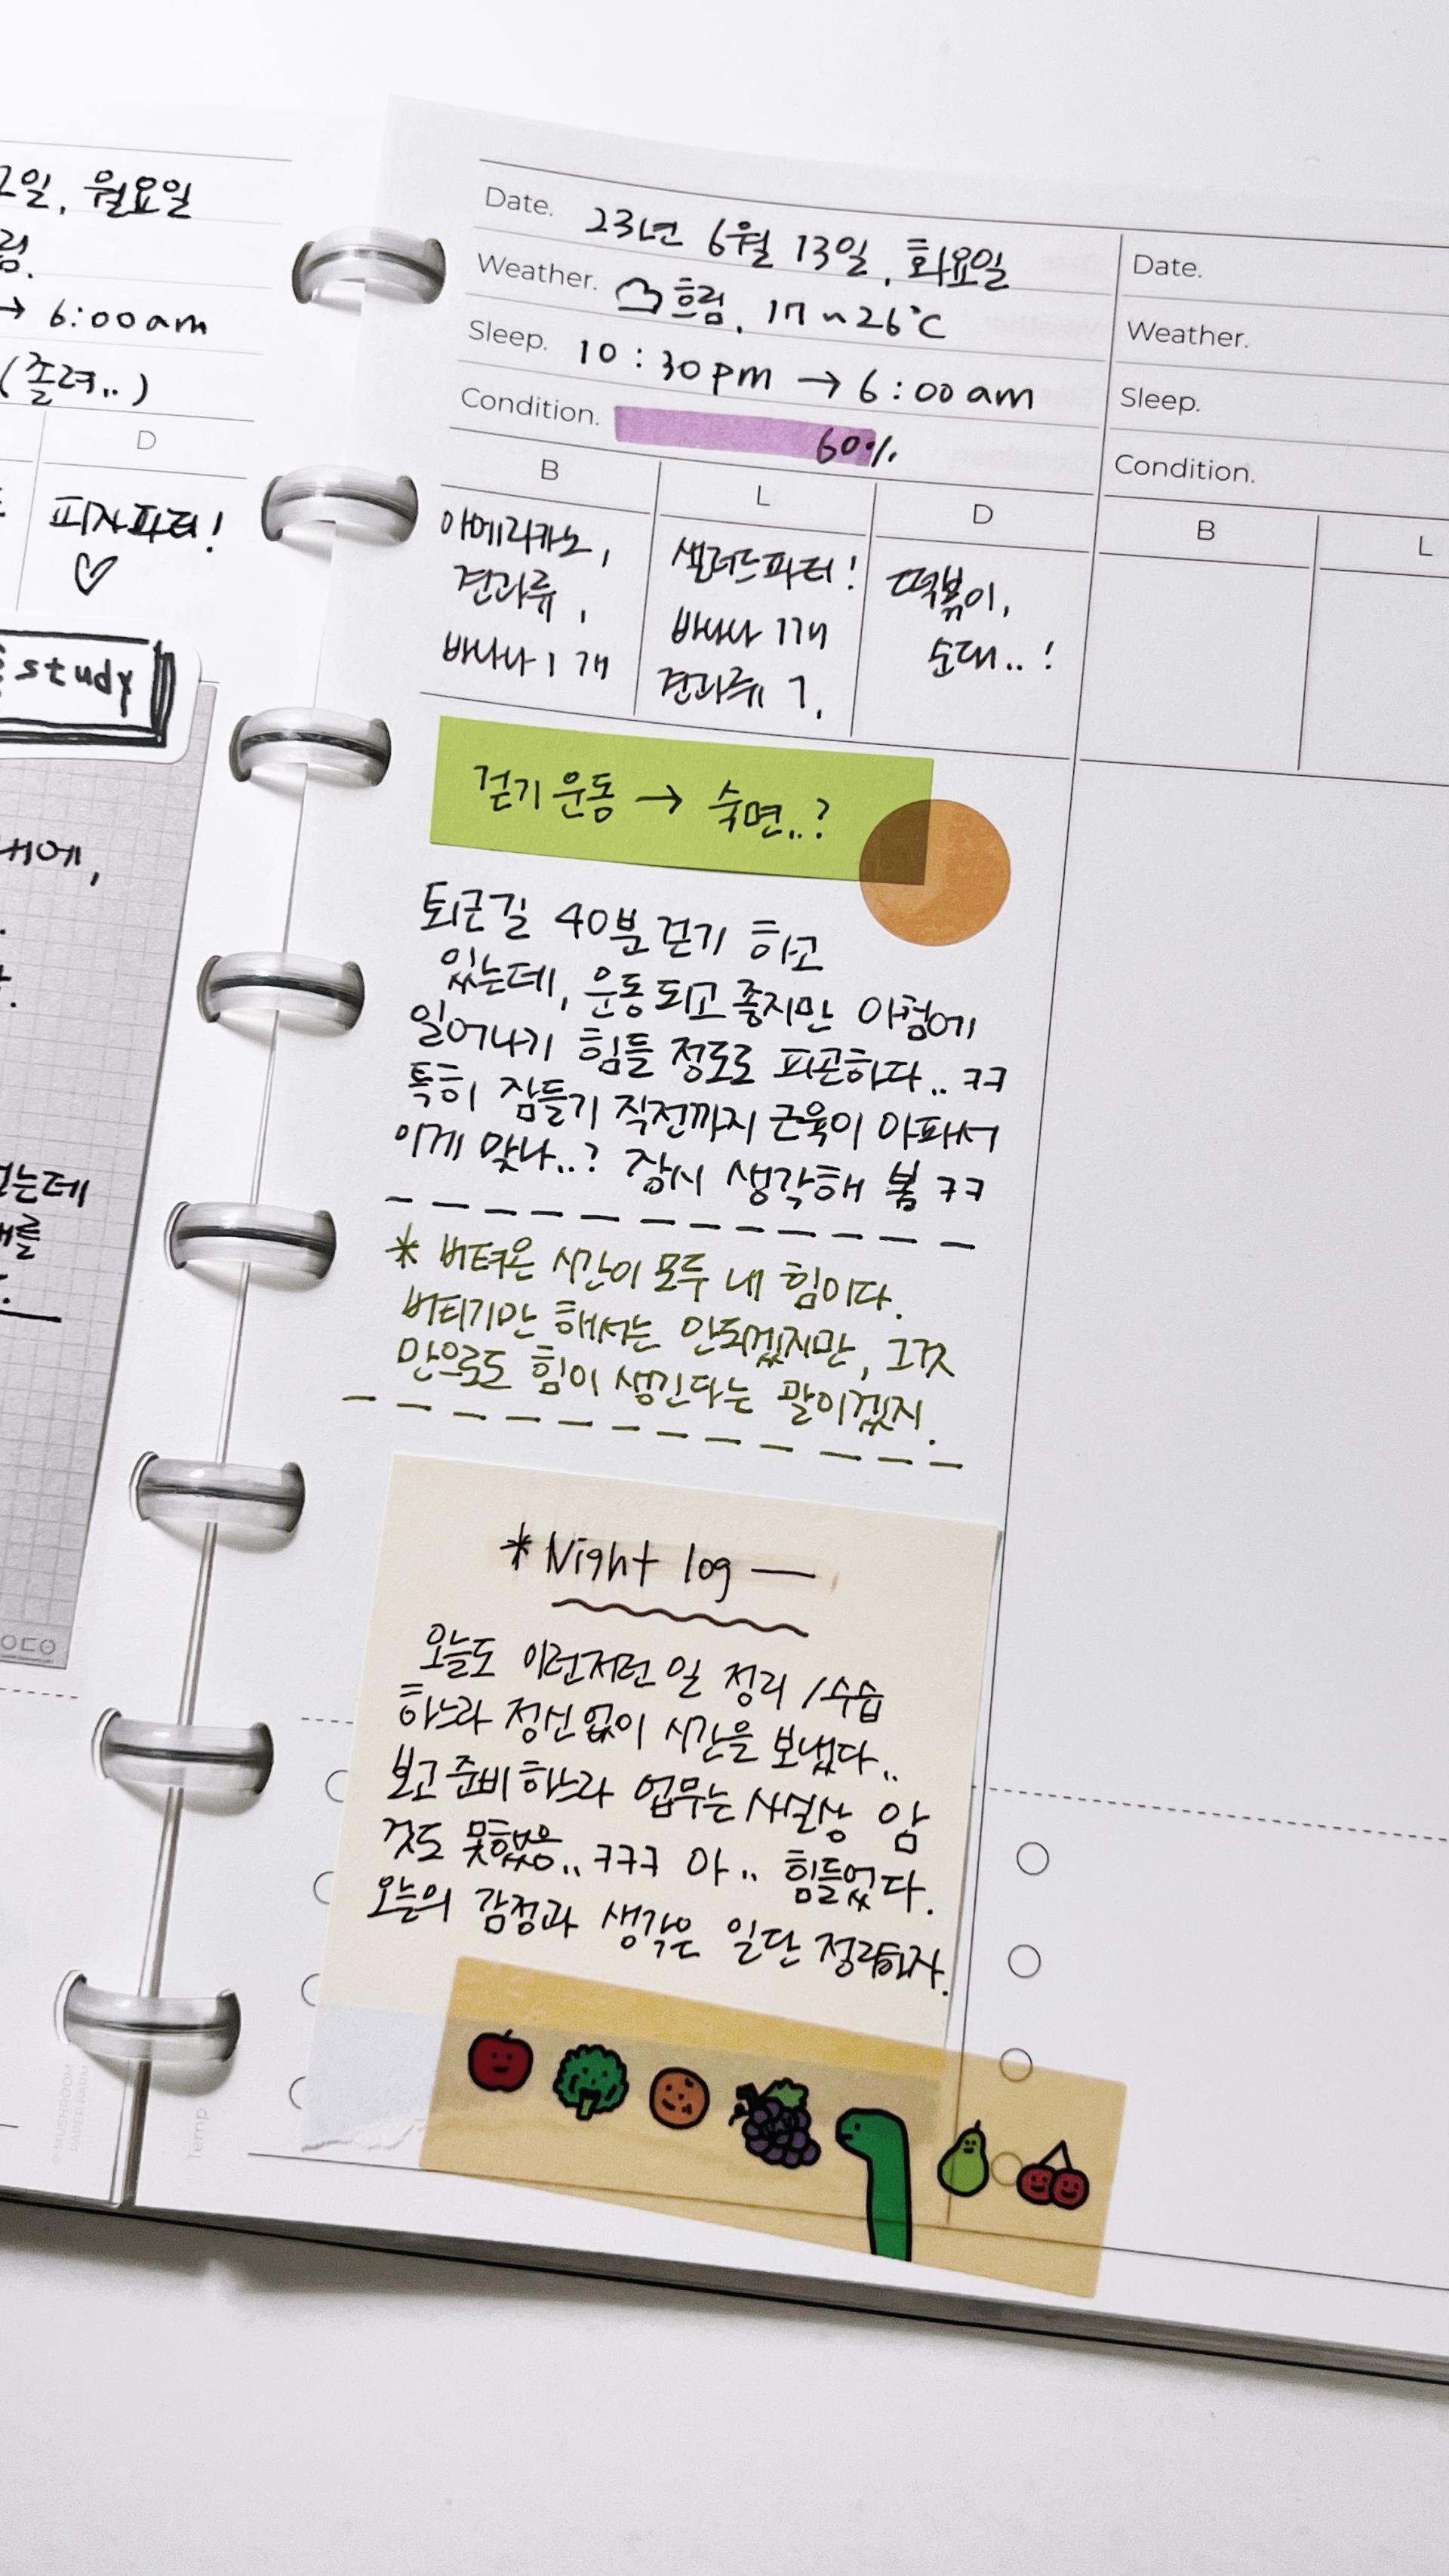 2일, 월요일
→ 6:00am
(졸려..)
D
피자파티!
study
에,
는데
를
Date. 23년 6월 13일, 화요일
Weather. 흐림, 17~26℃
Sleep. 10:30pm → 6:00am
Condition. 60%
B
아메리카노,
견과류,
바나나 1개
L
샐러드파티!
바나나 1개
견과류 1.
D
떡볶이,
순대..!
걷기 운동 → 숙면..?
퇴근길 40분 걷기 하고
있는데, 운동 되고 좋지만 아침에
일어나기 힘들 정도로 피곤하다.. ㅋㅋ
특히 잠들기 직전까지 근육이 아파서
이게 맞나..? 잠시 생각해 봄 ㅋㅋ
* 버텨온 시간이 모두 내 힘이다.
버티기만 해서는 안되겠지만, 그것
만으로도 힘이 생긴다는 말이겠지.
* Night log —
오늘도 이런저런 일 정리/수습
하느라 정신없이 시간을 보냈다..
보고 준비 하느라 업무는 사실상 암
것도 못했음.. ㅋㅋㅋ 아.. 힘들었다.
오늘의 감정과 생각은 일단 정리하자.
©MUSHROOM
PAPER FARM
Temp
Date.
Weather.
Sleep.
Condition.
B
L